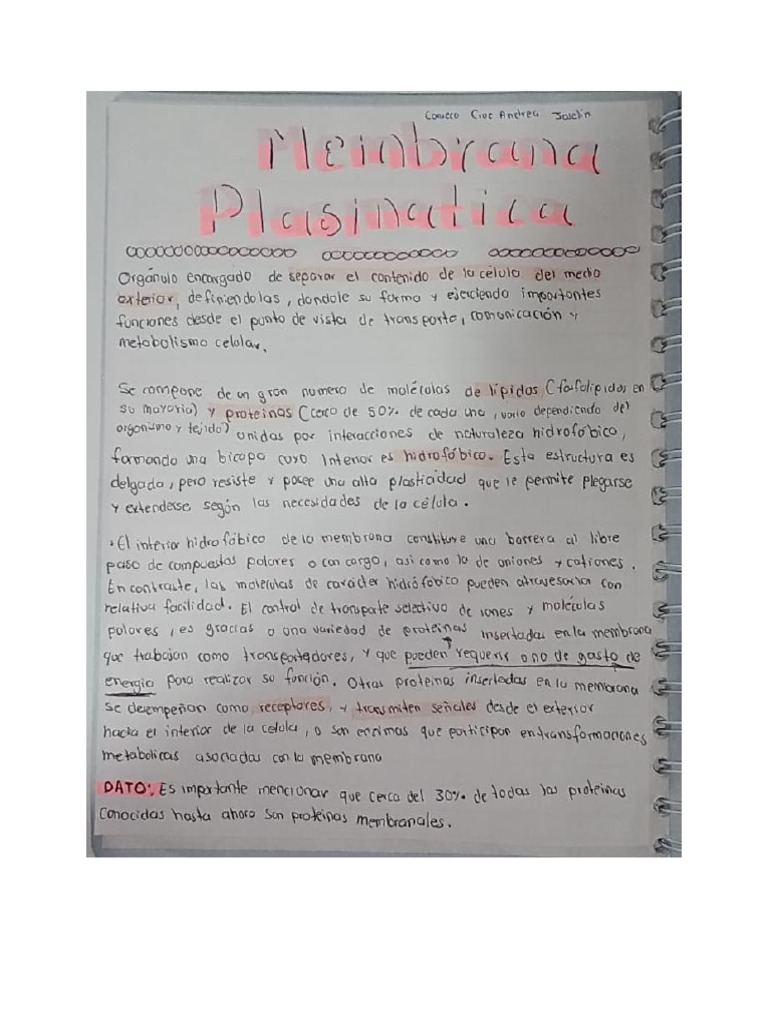 Cruz Andrea Joselin
Membrana
Plasmatica
Orgánulo encargado de separar el contenido de la célula del medio
exterior, definiendolas, dandole su forma y ejerciendo importantes
funciones desde el punto de vista de transporte, comunicación y
metabolismo celular.
Se compone de un gran numero de moléculas de lípidos (fosfolipidos en
su mayoria) y proteinas (cerca de 50% de cada una, varia dependiendo del
organismo y tejido) unidas por interacciones de naturaleza hidrofóbico,
formando una bicapa cuyo interior es hidrofóbico. Esta estructura es
delgada, pero resiste y posee una alta plasticidad que le permite plegarse
y extenderse según las necesidades de la célula.
• El interior hidrofóbico de la membrana constituye una barrera al libre
paso de compuestos polares o con carga, asi como la de aniones y cationes.
En contraste, las moleculas de carácter hidrófóbico pueden atravesarla con
relativa facilidad. El control de transporte selectivo de iones y moléculas
polares, es gracias a una variedad de proteinas insertadas en la membrana
que trabajan como transportadores, y que pueden requerir o no de gasto de
energia para realizar su función. Otras proteinas insertadas en la membrana
se desempeñan como receptores, y transmiten señales desde el exterior
hacia el interior de la celula, o son enzimas que participan en transformaciones
metabolicas asociadas con la membrana
DATO: Es importante mencionar que cerca del 30% de todas las proteinas
conocidas hasta ahora son proteinas membranales.